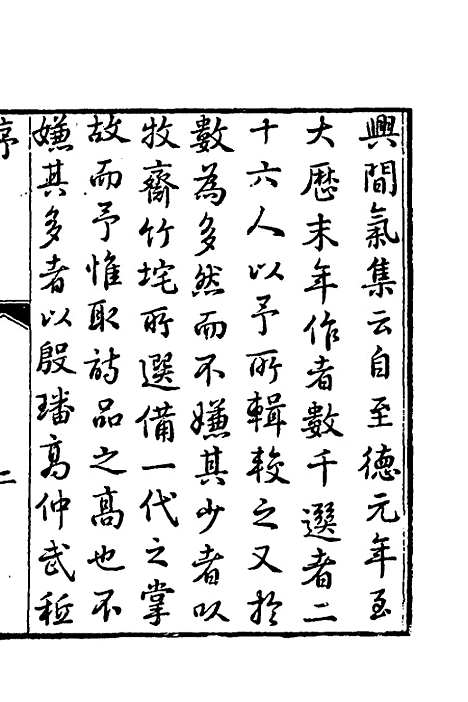 興間氣集云自至德元年至
大歷末年作者數千選者二
十六人以予所輯較之又於
數為多然而不嫌其少者以
牧齋竹垞所選備一代之掌
故而予惟取詩品之高也不
嫌其多者以殷璠高仲武祗
序
二